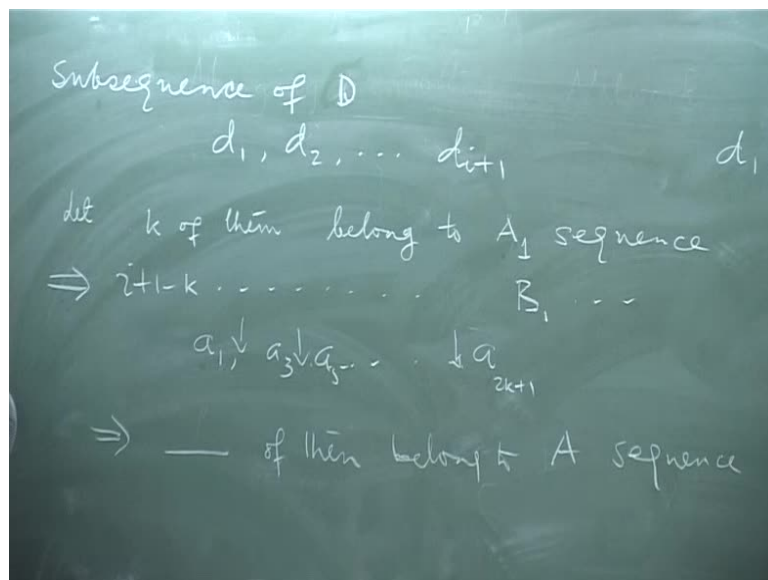 Subsequence of D
d₁, d₂, ... dᵢ₊₁ d₁
let k of them belong to A₁ sequence
⇒ i+1-k ......... B₁ ...
a₁,↓ a₃↓a₅... . ↓a₂ₖ₊₁
⇒ __ of them belong to A sequence